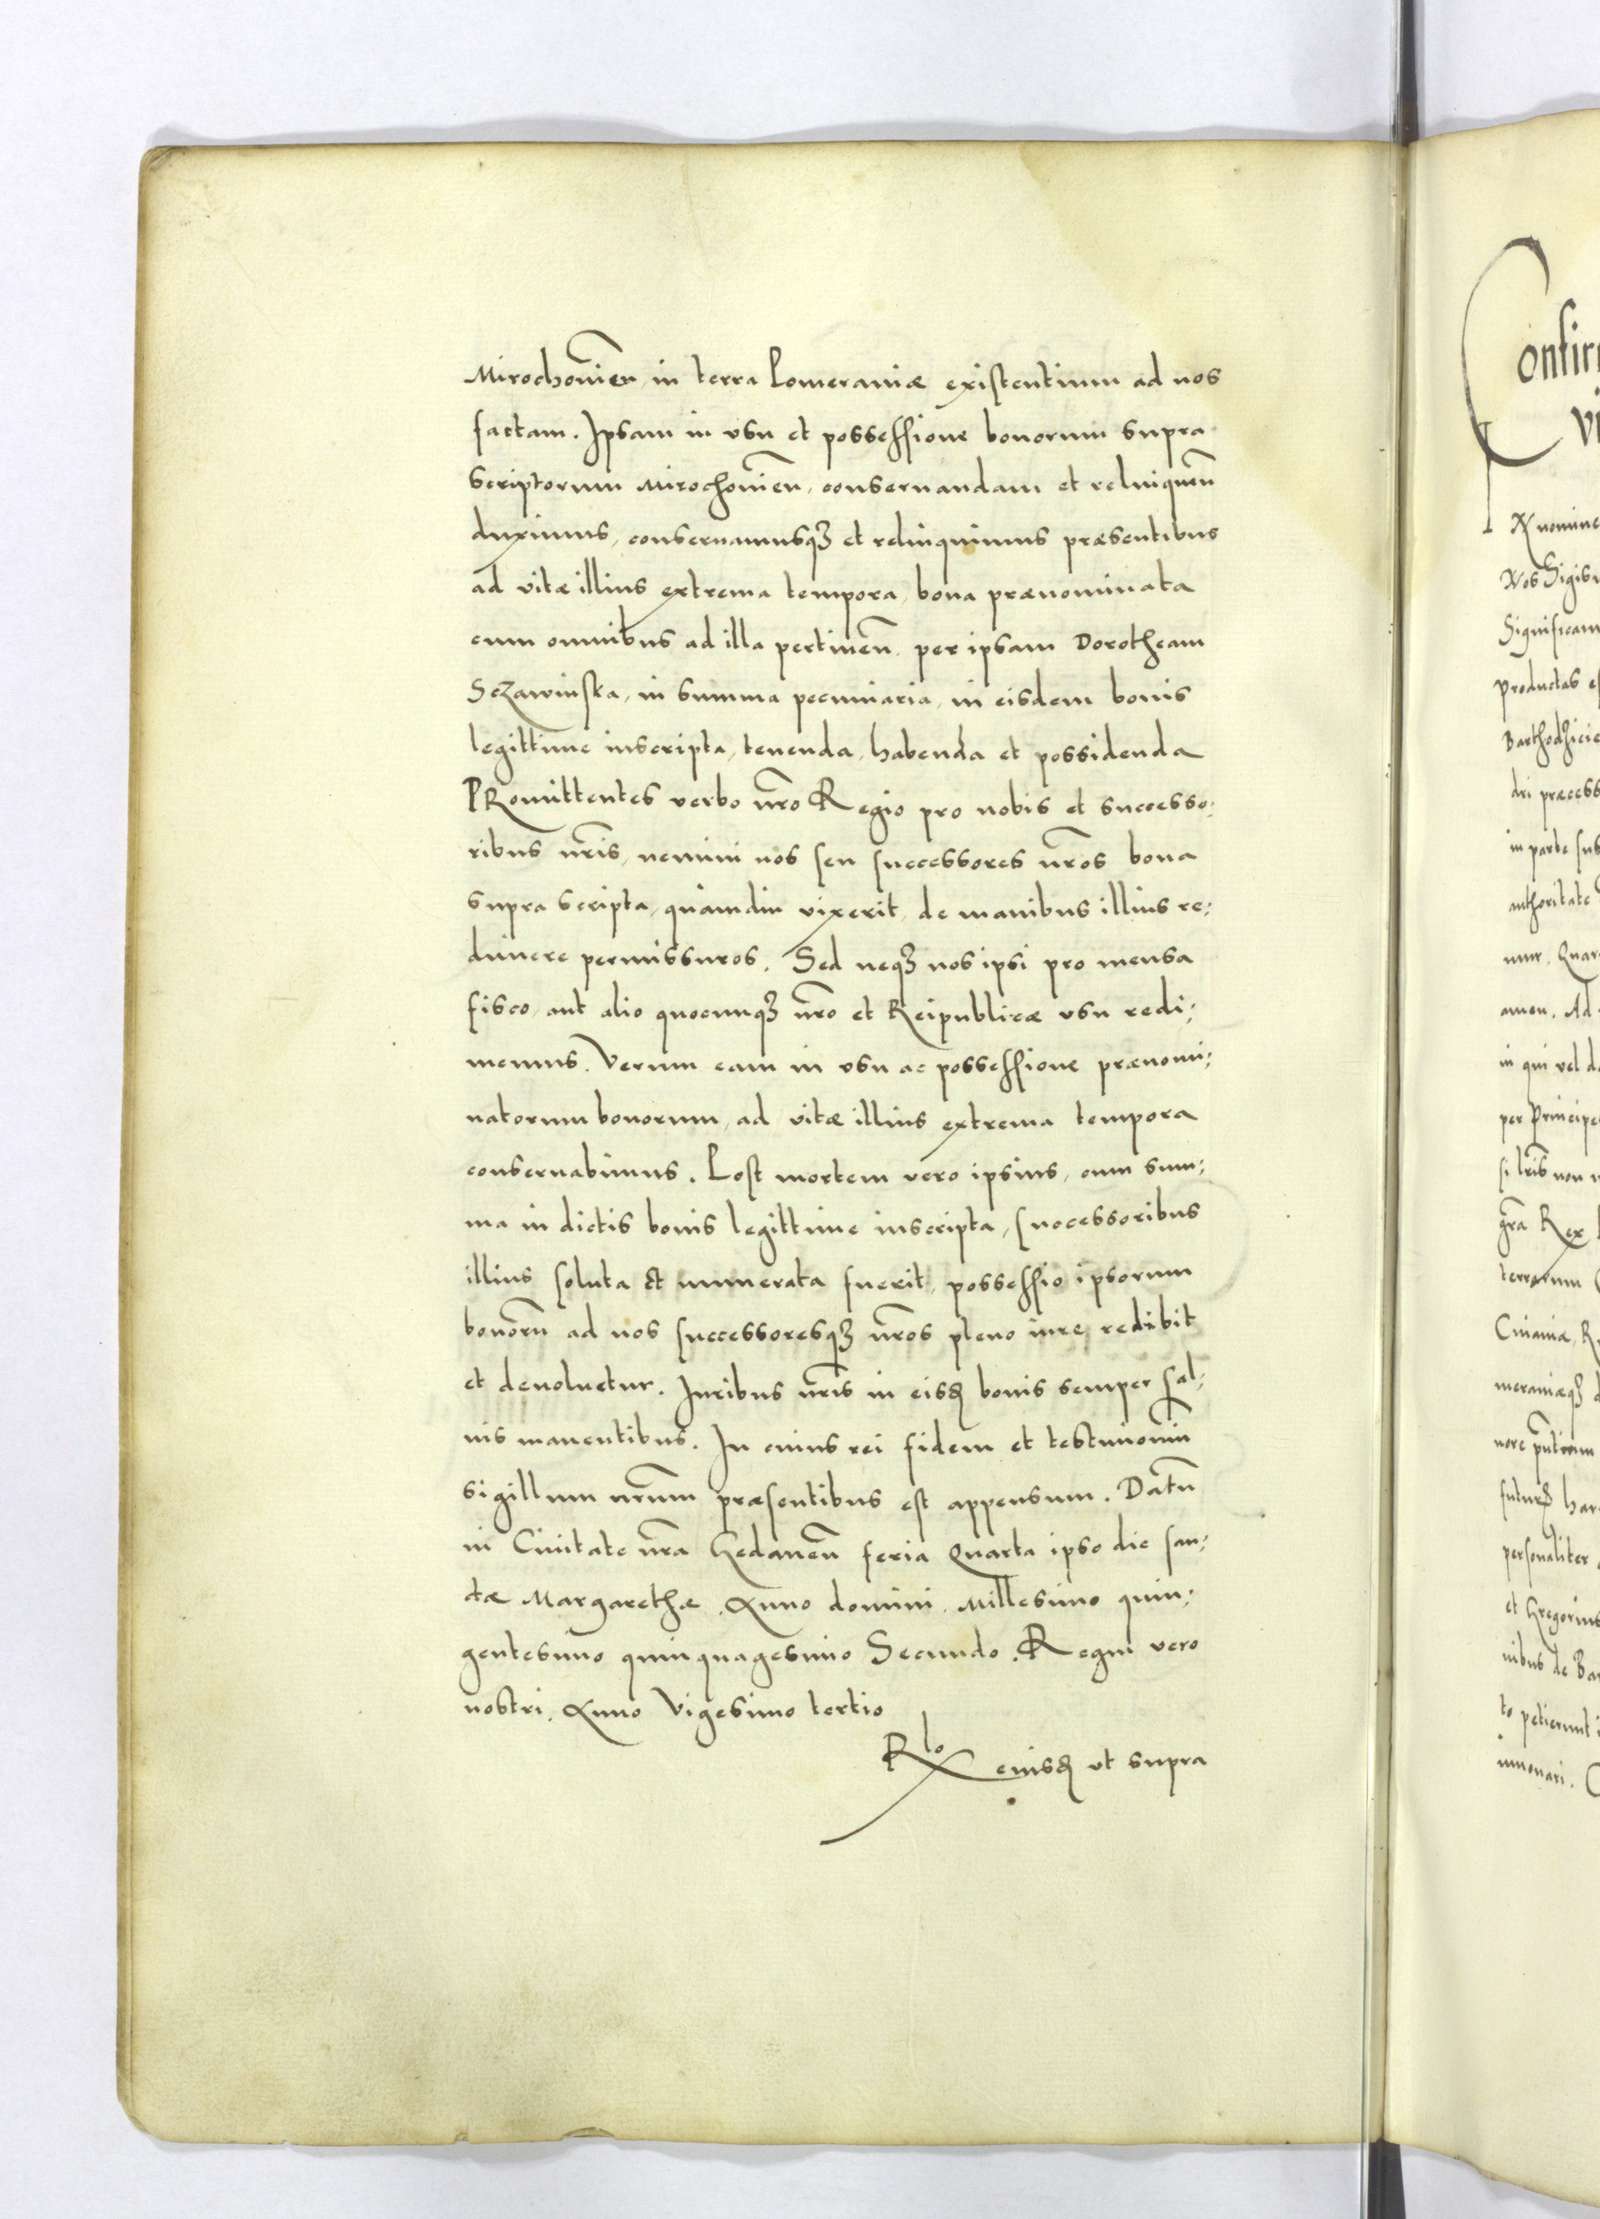 Mirochovien̄ in terra Pomeraniæ existentium ad nos
factam. Ipsam in vsu et possessione bonorum supra
scriptorum Mirochovien̄, conseruandam et relinquen̄
duximus, conseruamusqʒ et relinquimus præsentibus
ad vitæ illius extrema tempora, bona prænominata
cum omnibus ad illa pertinen̄. per ipsam Dorotheam
Sczawinska, in summa pecuniaria, in eisdem bonis
legittime inscripta, tenenda, habenda et possidenda
PRomittentes verbo nr̄o Regio pro nobis et successo:
ribus nr̄is, nemini nos seu successores nr̄os bona
supra scripta, quamdiu vixerit, de manibus illius re:
dimere permissuros. Sed neqʒ nos ipsi pro mensa
fisco, aut alio quocunqʒ nr̄o et Reipublicæ vsu redi:
memus. Verum eam in vsu ac possessione prænomi:
natorum bonorum, ad vitæ illius extrema tempora
conseruabimus. Post mortem vero ipsius, cum sum:
ma in dictis bonis legittime inscripta, successoribus
illius soluta et numerata fuerit, possessio ipsorum
bonorū ad nos successoresqʒ nr̄os pleno iure redibit
et deuoluetur. Iuribus nr̄is in eisđ bonis semper sal:
uis manentibus. In cuius rei fidem et testimoniū
sigillum nr̄um præsentibus est appensum. Datū
in Ciuitate nr̄a Gedanen̄ feria Quarta ipso die san:
ctæ Margarethæ. Anno domini. Millesimo quin:
gentesimo quinquagesimo Secundo. Regni vero
nostri. Anno Vigesimo tertio
Rlo eiusđ ut supra
Confir
vi
IN nomine
Nos Sigis
Significam
productas es
Barthodzicie
dri præcess
in parte sub
authoritate
mur. Quar
amen. Ad
in qui vel d
per Principe
si lr̄is non
gr̄a Rex
terrarum
Cuiauia, R
meraniæqʒ d
personaliter
et Gregorius
nibus de Ba
to petierunt